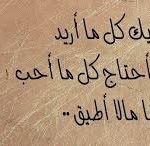 يك كل ما أريد
أحتاج كل ما أحب
ا مالا أطيق ..